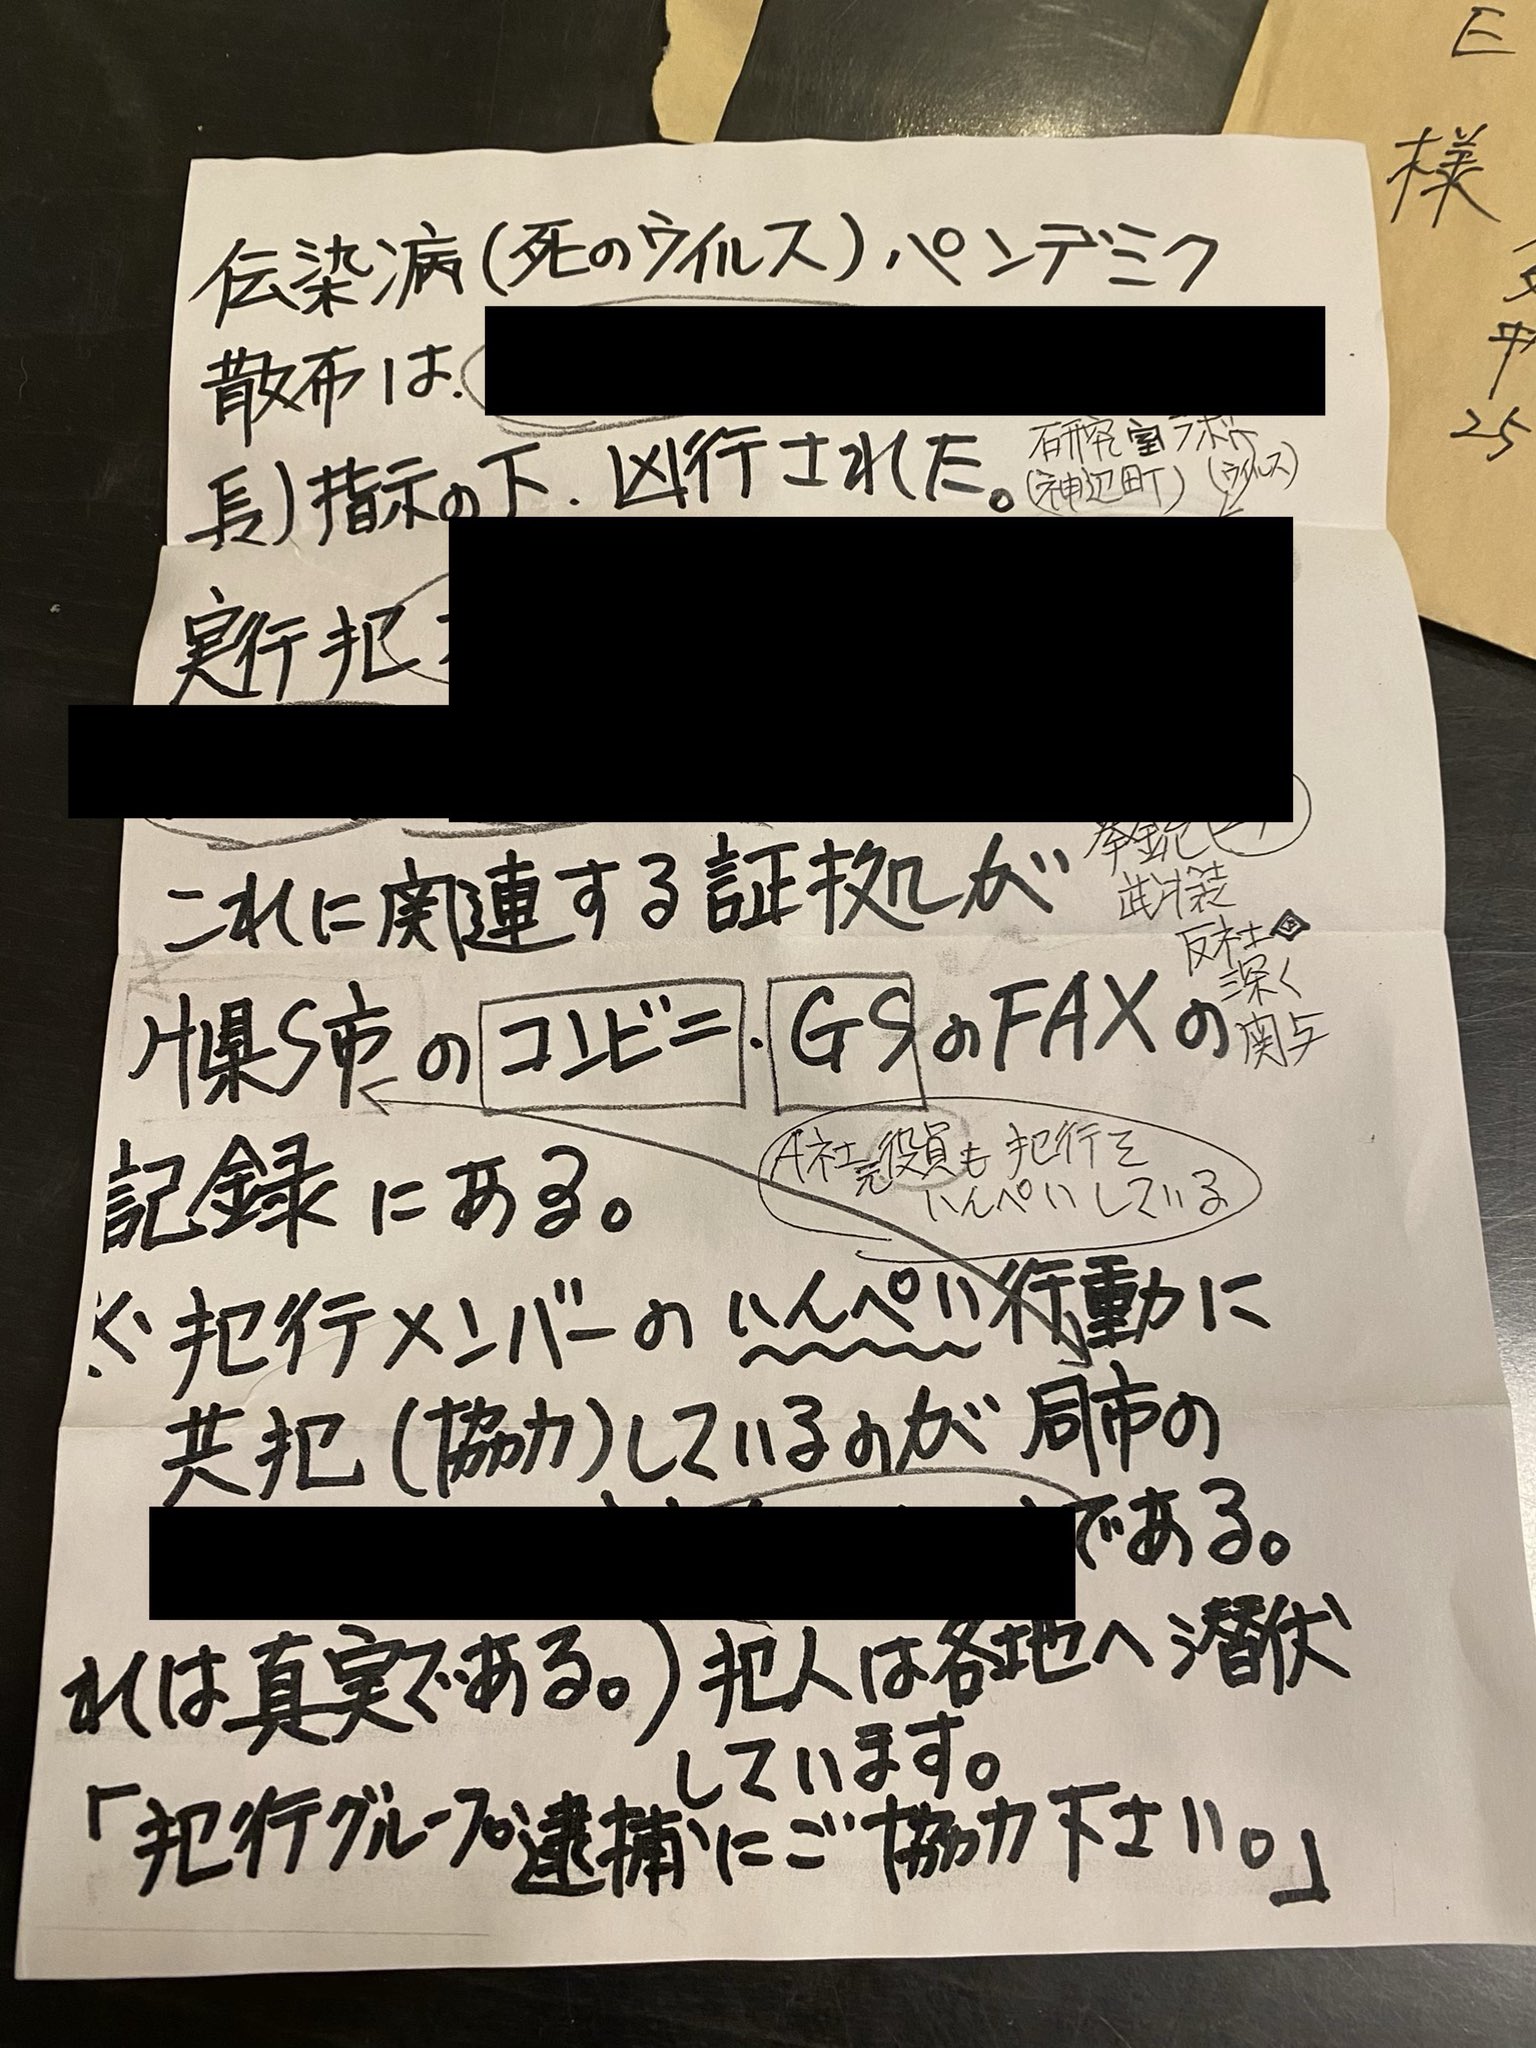 伝染病(死のウイルス)パンデミク
散布は.
長)指示の下.凶行された。
研究室ラボ
(神辺町)(ウイルス)
実行犯
これに関連する証拠が
拳銃
武装
反社
深く
関与
H県S市のコンビニ.GSのFAXの
記録にある。
A社元役員も犯行を
いんぺいしている
犯行メンバーのいんぺい行動に
共犯(協力)しているのが同市の
である。
れは真実である。)犯人は各地へ潜伏
しています。
「犯行グループ逮捕にご協力下さい。」
E
様
25